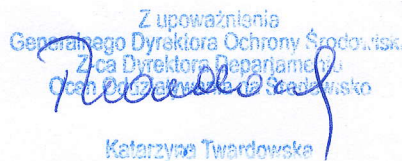 Z upoważnienia
Generalnego Dyrektora Ochrony Środowiska
Z-ca Dyrektora Departamentu
Ocen Oddziaływania na Środowisko
Katarzyna Twardowska